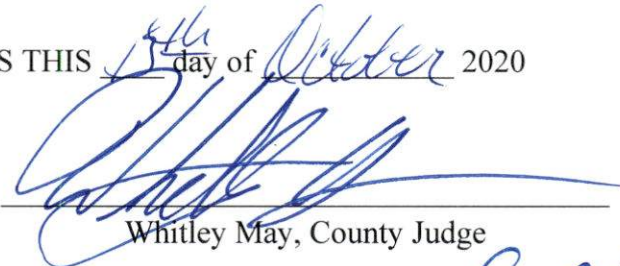 S THIS 15th day of October 2020
Whitley May, County Judge